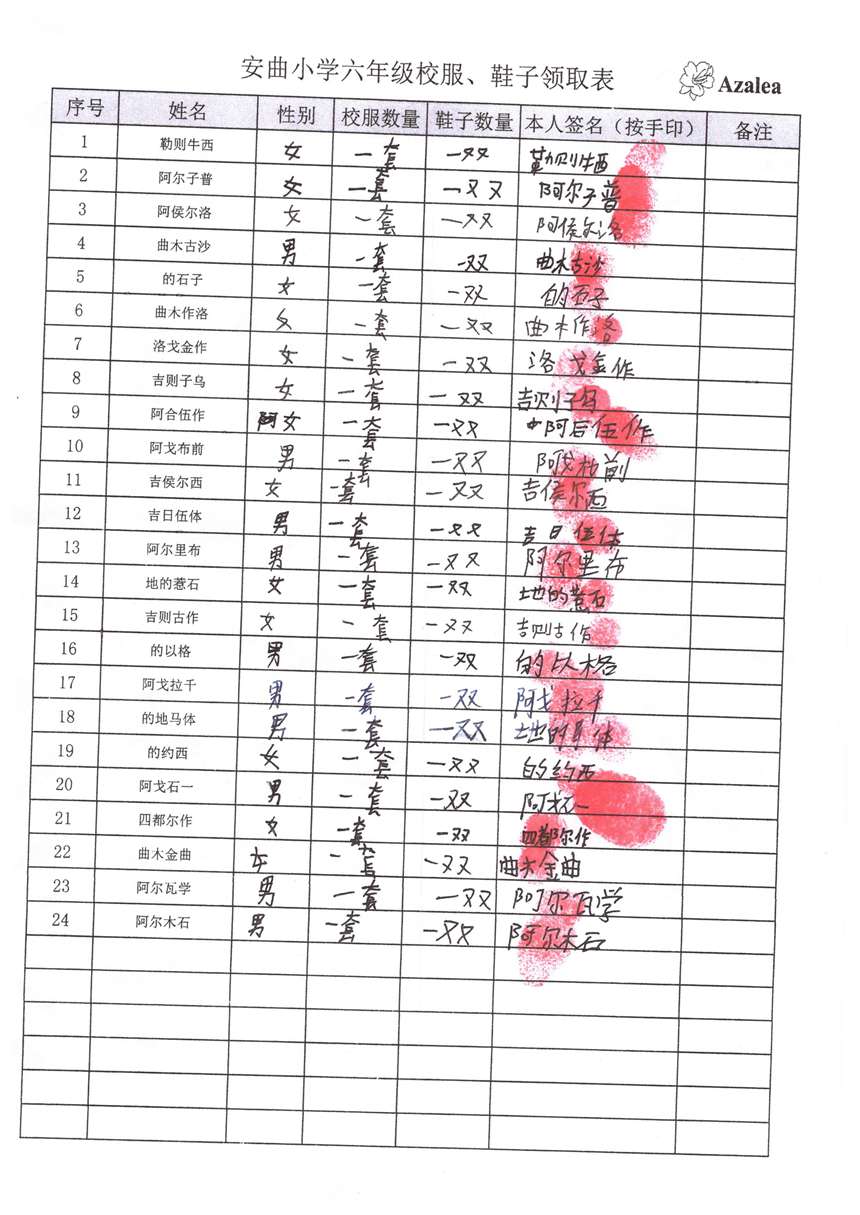 安曲小学六年级校服、鞋子领取表
Azalea
序号 姓名 性别 校服数量 鞋子数量 本人签名（按手印） 备注
1 勒则牛西 女 一套 一双 勒则牛西
2 阿尔子普 女 一套 一双 阿尔子普
3 阿侯尔洛 女 一套 一双 阿侯尔洛
4 曲木古沙 男 一套 一双 曲木古沙
5 的石子 女 一套 一双 的石子
6 曲木作洛 女 一套 一双 曲木作洛
7 洛戈金作 女 一套 一双 洛戈金作
8 吉则子乌 女 一套 一双 吉则子乌
9 阿合伍作 阿女 一套 一双 阿后伍作
10 阿戈布前 男 一套 一双 阿戈布前
11 吉侯尔西 女 一套 一双 吉侯尔西
12 吉日伍体 男 一套 一双 吉日伍体
13 阿尔里布 男 一套 一双 阿尔里布
14 地的惹石 女 一套 一双 地的惹石
15 吉则古作 女 一套 一双 吉则古作
16 的以格 男 一套 一双 的以格
17 阿戈拉千 男 一套 一双 阿戈拉千
18 的地马体 男 一套 一双 地的 体
19 的约西 女 一套 一双 的约西
20 阿戈石一 男 一套 一双 阿戈石一
21 四都尔作 女 一套 一双 四都尔作
22 曲木金曲 女 一套 一双 曲木金曲
23 阿尔瓦学 男 一套 一双 阿尔瓦学
24 阿尔木石 男 一套 一双 阿尔木石